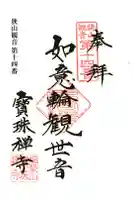 奉拝
如意輪観世音
寳珠禅寺
狭山観音第十四番